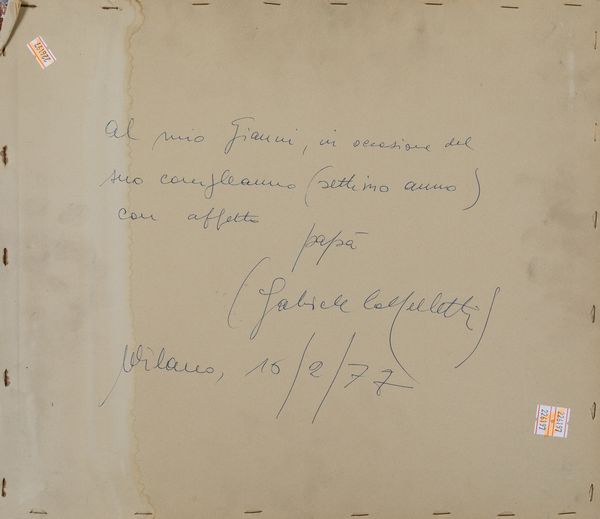 Al mio Gianni, in occasione del
suo compleanno (settimo anno)
con affetto
papà
(Gabriele
Milano, 16/2/77
226197
226197